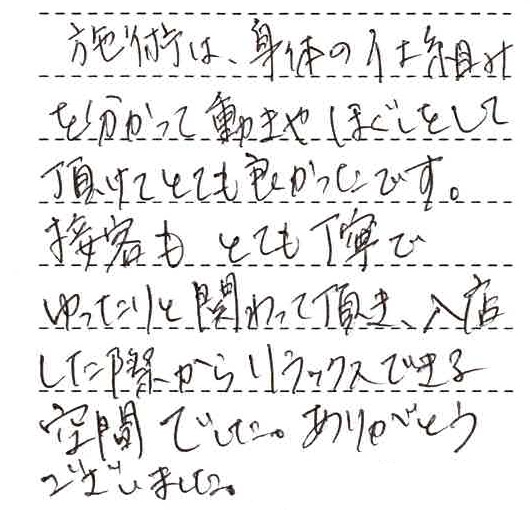 施術は、身体の仕組み
を分かって動きやほぐしをして
頂けてとても良かったです。
接客もとても丁寧で
ゆったりと関わって頂き、入店
した際からリラックスできる
空間でした。ありがとう
ございました。